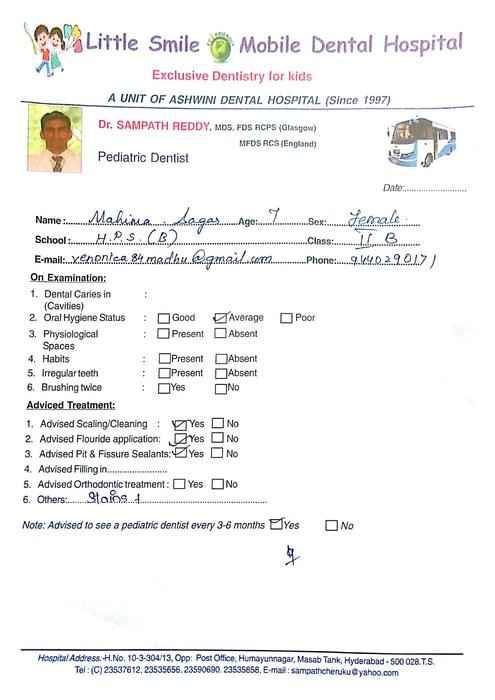 Little Smile Mobile Dental Hospital
Exclusive Dentistry for kids
A UNIT OF ASHWINI DENTAL HOSPITAL (Since 1997)
Dr. SAMPATH REDDY, MDS, FDS RCPS (Glasgow)
MFDS RCS (England)
Pediatric Dentist
Date:........................
Name:.... Mahima . Sagar .... Age: 7 Sex: Female
School:.... H.P.S. (B) .... Class: II B
E-mail:.. venonica84madhu@gmail.com Phone: 9440290171
On Examination:
1. Dental Caries in :
(Cavities)
2. Oral Hygiene Status : ☐ Good ☑ Average ☐ Poor
3. Physiological : ☐ Present ☐ Absent
Spaces
4. Habits : ☐ Present ☐ Absent
5. Irregular teeth : ☐ Present ☐ Absent
6. Brushing twice : ☐ Yes ☐ No
Adviced Treatment:
1. Advised Scaling/Cleaning : ☑ Yes ☐ No
2. Advised Flouride application: ☑ Yes ☐ No
3. Advised Pit & Fissure Sealants: ☑ Yes ☐ No
4. Advised Filling in....................
5. Advised Orthodontic treatment : ☐ Yes ☐ No
6. Others:.... Stains +
Note: Advised to see a pediatric dentist every 3-6 months ☑ Yes ☐ No
Hospital Address:-H.No. 10-3-304/13, Opp: Post Office, Humayunnagar, Masab Tank, Hyderabad - 500 028.T.S.
Tel : (C) 23537612, 23535656, 23590690. 23535858, E-mail : sampathcheruku@yahoo.com